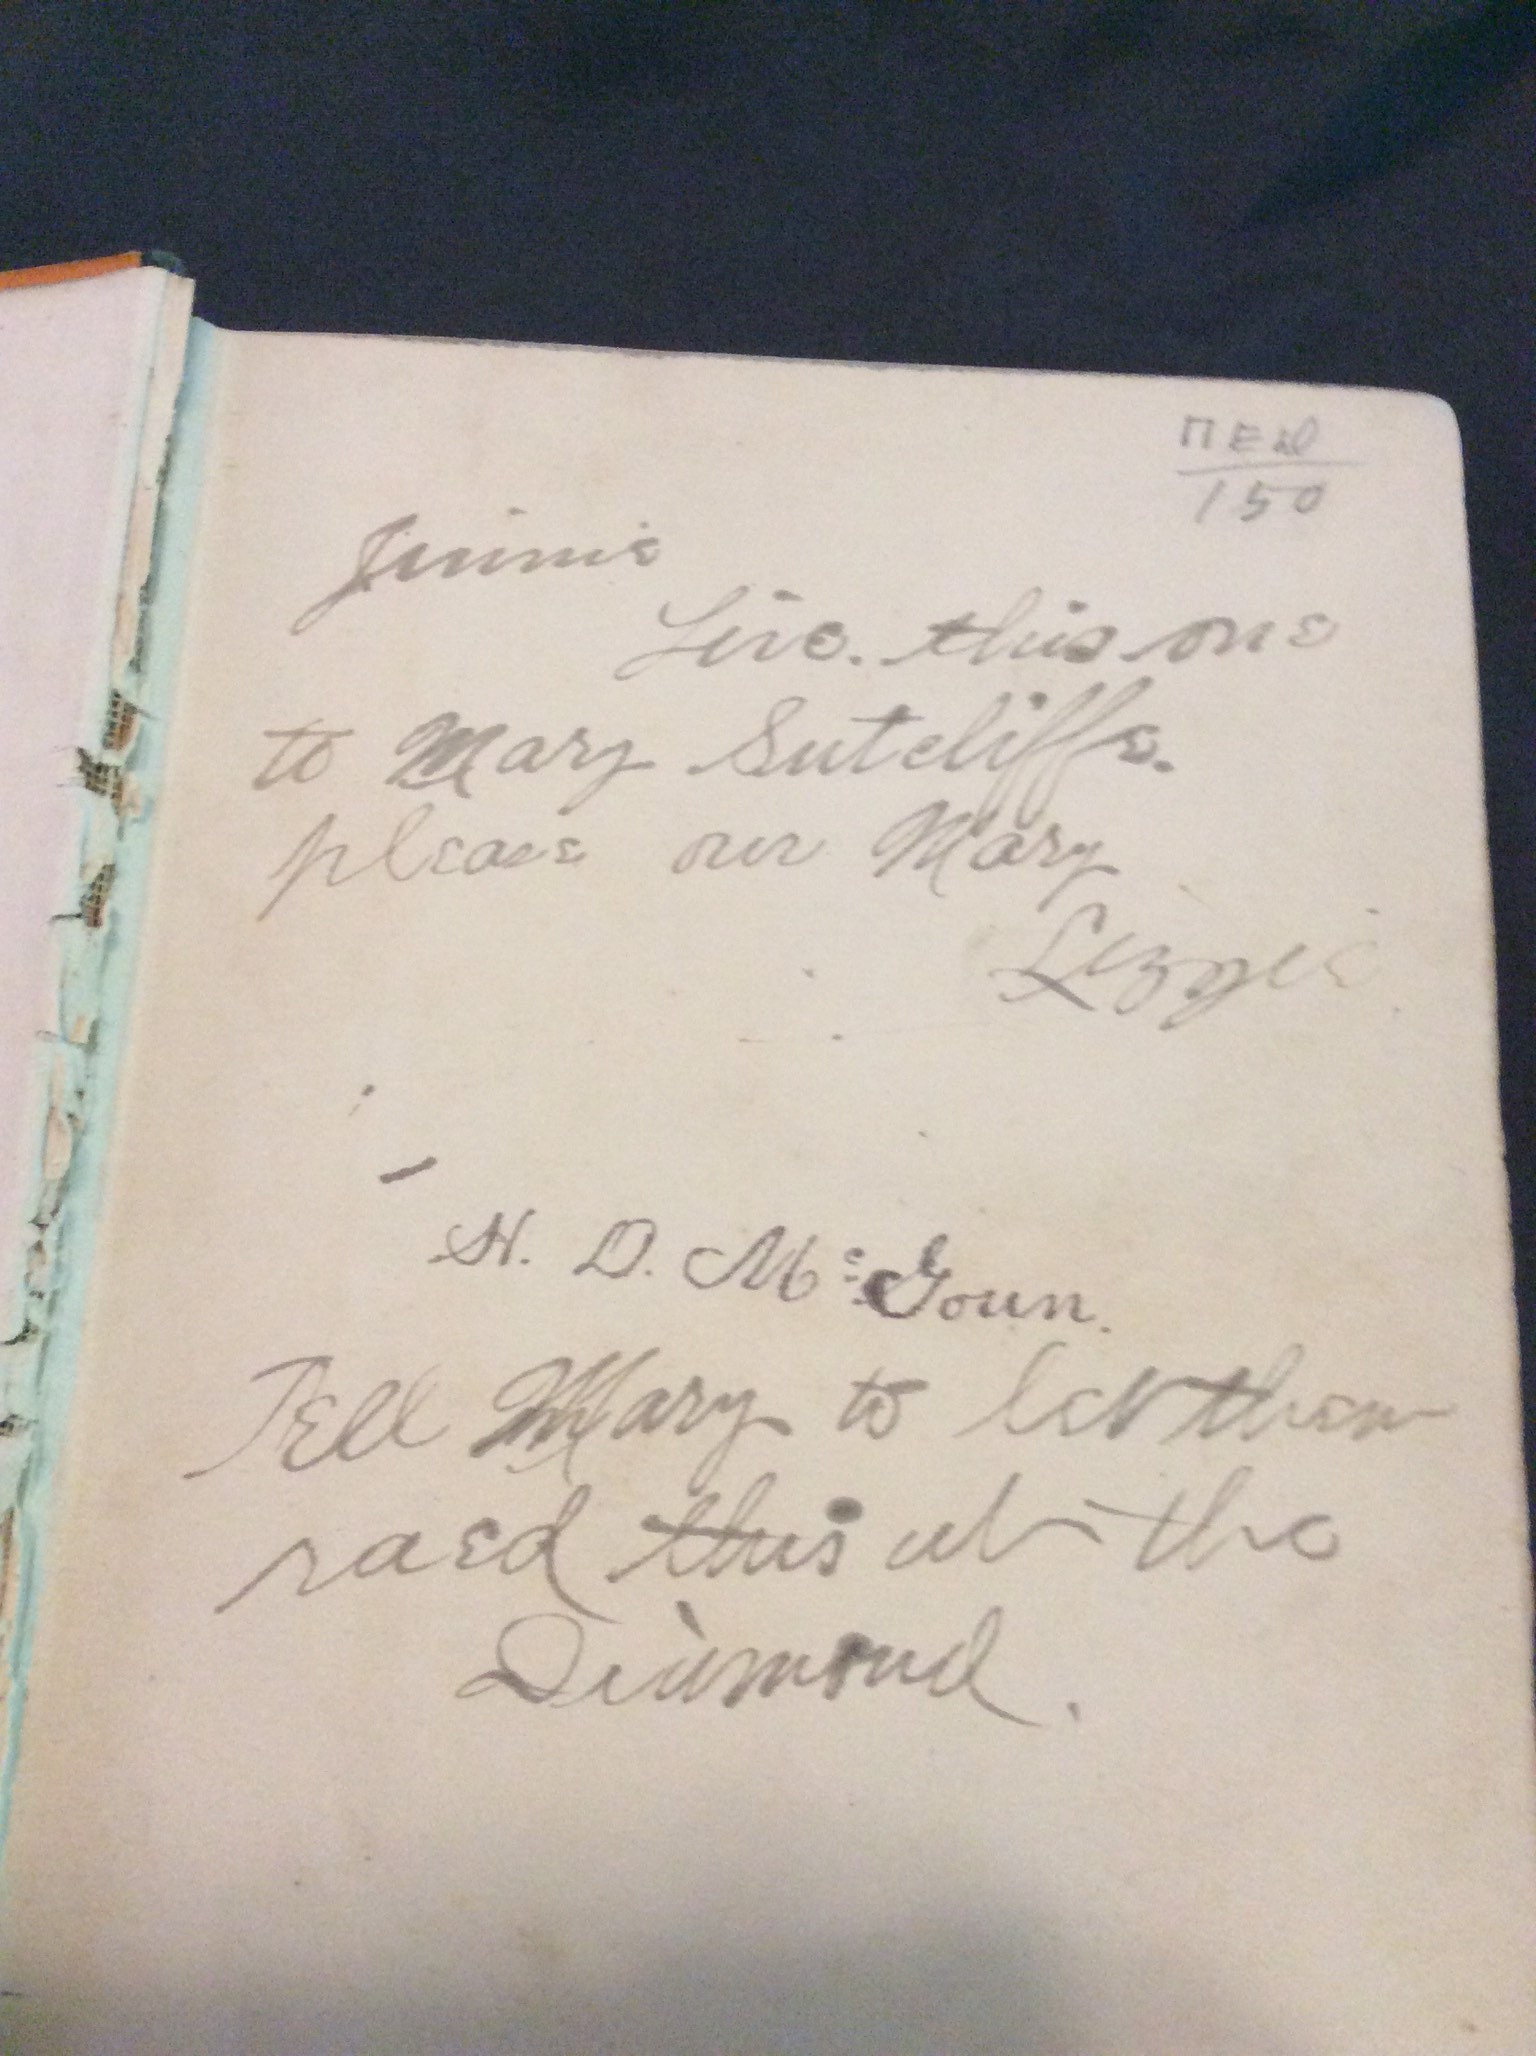 150
Jinnie
Give this one
to Mary Sutcliffe.
please our Mary
Lizzie
H. D. McGoun.
Tell Mary to let them
raed this at the
Diamond.